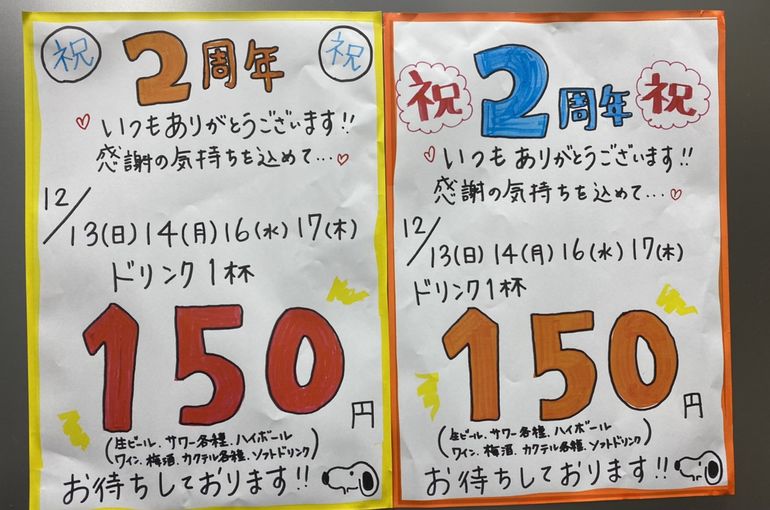 祝 2周年 祝
いつもありがとうございます!!
感謝の気持ちを込めて...
12/13(日)14(月)16(水)17(木)
ドリンク1杯
150円
(生ビール、サワー各種、ハイボール
ワイン、梅酒、カクテル各種、ソフトドリンク)
お待ちしております!!
祝 2周年 祝
いつもありがとうございます!!
感謝の気持ちを込めて...
12/13(日)14(月)16(水)17(木)
ドリンク1杯
150円
(生ビール、サワー各種、ハイボール
ワイン、梅酒、カクテル各種、ソフトドリンク)
お待ちしております!!